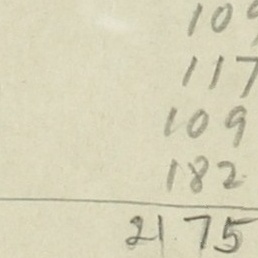 109
117
109
182
2175